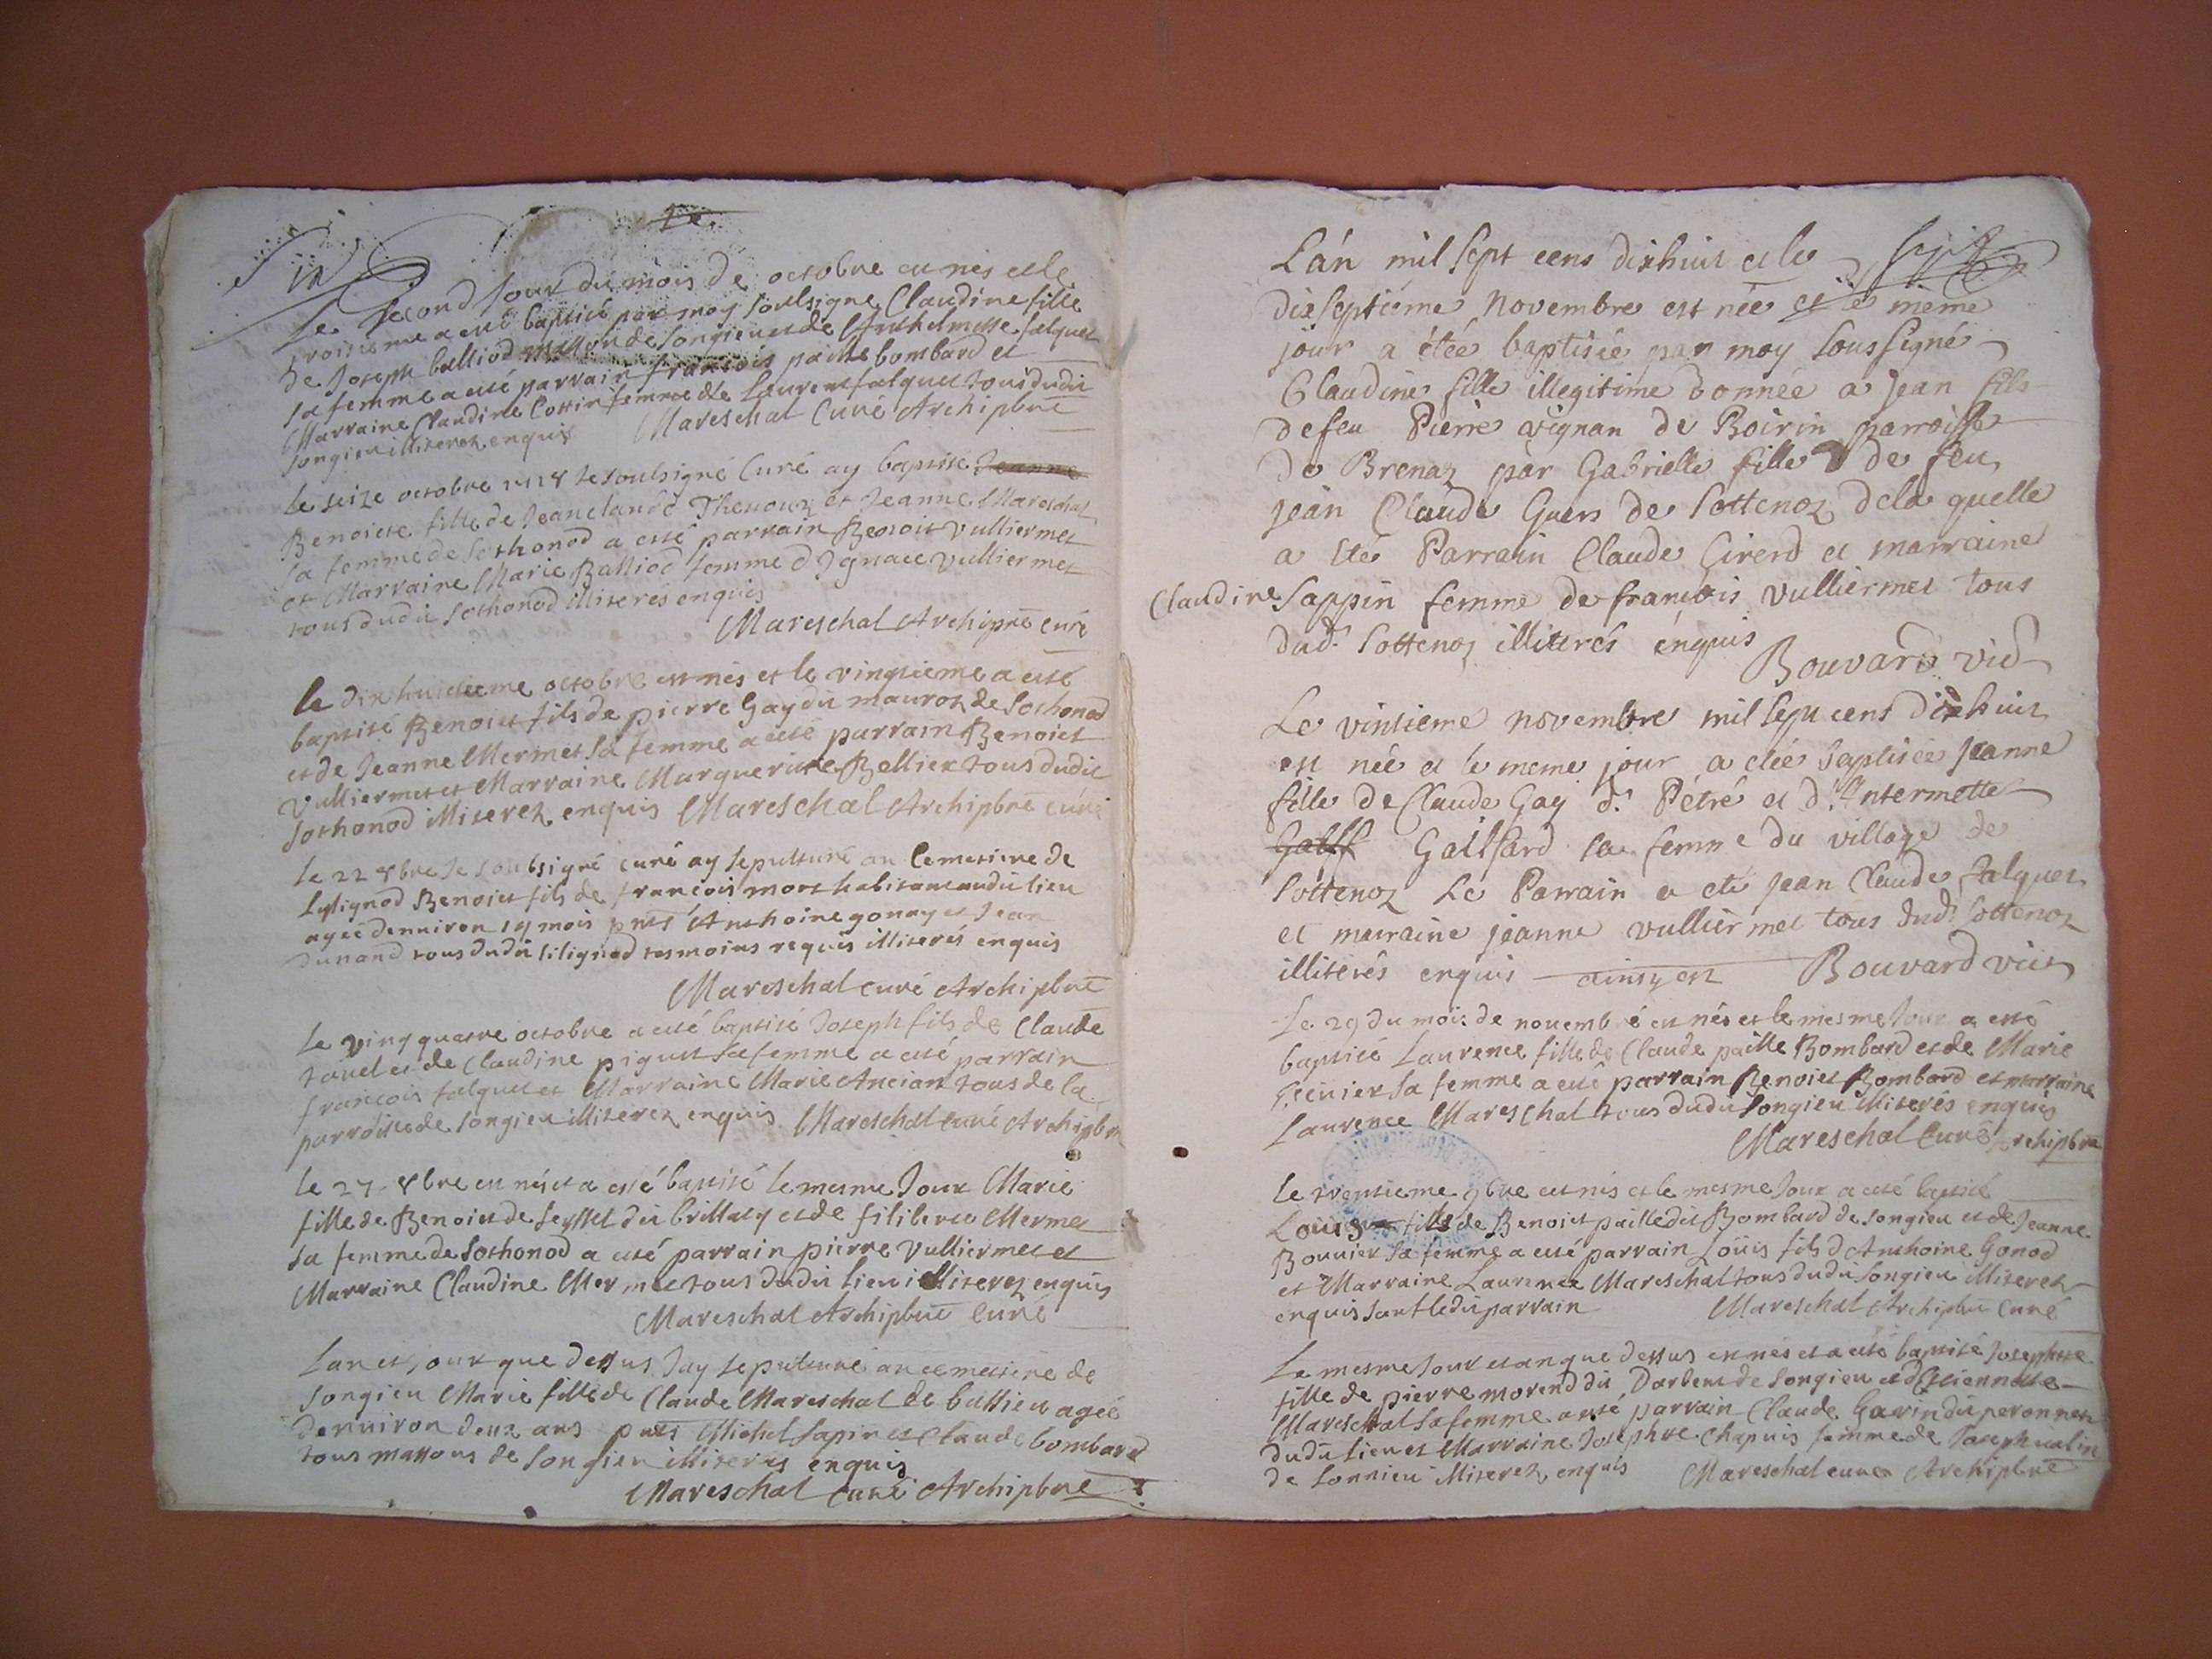 Le second Jour du mois de octobre est nés et le
troisieme a esté baptisé par moy soulsigné Claudine fille
de Joseph balliod masson de Songieu et de Anthelmesse falquet
sa femme a esté parrain françois paille bombard et
Marraine Claudine Cottin femme de Laurent falquet tous dudit
Songieu illiterez enquis Mareschal Curé Archipbre
le seize octobre 1718 Je soulsigné Curé ay baptisé Jeanne
Benoiste fille de Jeanclaude Thevonz et Jeanne Mareschal
sa femme de Sothonod a esté parrain Benoit Vulliermet
et Marraine Marie Balliod femme d Ignace Vulliermet
tous dudit Sothonod illiterés enquis
Mareschal Archipre curé
le dix huictieme octobre est nés et le vingtieme a esté
baptisé Benoist fils de pierre Gay du mauroz de Sothonod
et de Jeanne Mermet sa femme a esté parrain Benoist
Vulliermet et Marraine Marguerite Bellier tous dudit
Sothonod illiterez enquis Mareschal Archipbre curé
le 22 8bre Je soubsigné curé ay sepulturé au Cemetiere de
Lilignod Benoist fils de françois mort habitant audit lieu
agée denviron 19 mois pnts Anthoine gonay et Jean
dunand tous dudit lilignod tesmoins requis illiterés enquis
Mareschal curé Archipbre
Le vingquatre octobre a esté baptisé Joseph fils de Claude
tavel et de Claudine piguet sa femme a esté parrain
françois falquet et Marraine Marie Ancian tous de la
parroisse de Songieu illiterez enquis Mareschal curé Archipbre
le 27 8bre est nés et a esté baptisé le mesme Jour Marie
fille de Benoist de Seyssel dit brillacy et de filiberte Mermet
sa femme de Sothonod a esté parrain pierre Vulliermet et
Marraine Claudine Mermet tous dudit lieu illiterez enquis
Mareschal Archipbre Curé
Lan et jour que dessus Jay sepulturé au cemetiere de
Songieu Marie fille de Claude Mareschal de bassieu agée
denviron deux ans pnts Michel Sapin et Claude bombard
tous massons de Songieu illiterés enquis
Mareschal Curé Archipbre
L'an mil sept cens dixhuit et le
dixseptiéme Novembre est née et le même
jour a étée baptisée par moy soussigné
Claudine fille illegitime donnée a Jean fils
de feu Pierre avignan de Boirin parroisse
de Brenaz par Gabrielle fille de feu
jean Claude Guers de Sottenoz de la quelle
a été Parrain Claude Girerd et marraine
Claudine Sappin femme de francois vulliermet tous
dud. Sottenoz illiterés énquis
Bouvard vic
Le vintieme novembre mil sept cens dixhuit
est née et le meme jour a etée baptisée Jeanne
fille de Claude Gay d. Pétré et d'Antermette
Gaillard sa femme du village de
Sottenoz Le Parrain a été jean Claude falquet
et marraine jeanne vulliermet tous dud. Sottenoz
illiterés enquis ainsy est Bouvard vic
Le 29 du mois de novembre est nés et le mesme Jour a esté
baptisé Laurence fille de Claude paille Bombard et de Marie
sa femme a esté parrain Benoist Bombard et marraine
Laurence Mareschal tous dudit Songieu illiterés enquis
Mareschal Curé Archipbre
le trentieme 9bre est nis et le mesme Jour a esté baptisé
Louis fils de Benoist paille dit Bombard de Songieu et de Jeanne
Bouvier sa femme a esté parrain Louis fils d Anthoine Gonod
et Marraine Laurence Mareschal tous dudit Songieu illiterez
enquis sauf ledit parrain Mareschal Archipbre Curé
Le mesme Jour et an que dessus est nés et a esté baptisé Josephte
fille de pierre morend dit Darbens de Songieu et dEstiennette
Mareschal sa femme a esté parrain Claude Gavin dit peronnet
dudit lieu et Marraine Josephte Chapuis femme de Joseph
de Songieu illiterez enquis Mareschal curé Archipbre